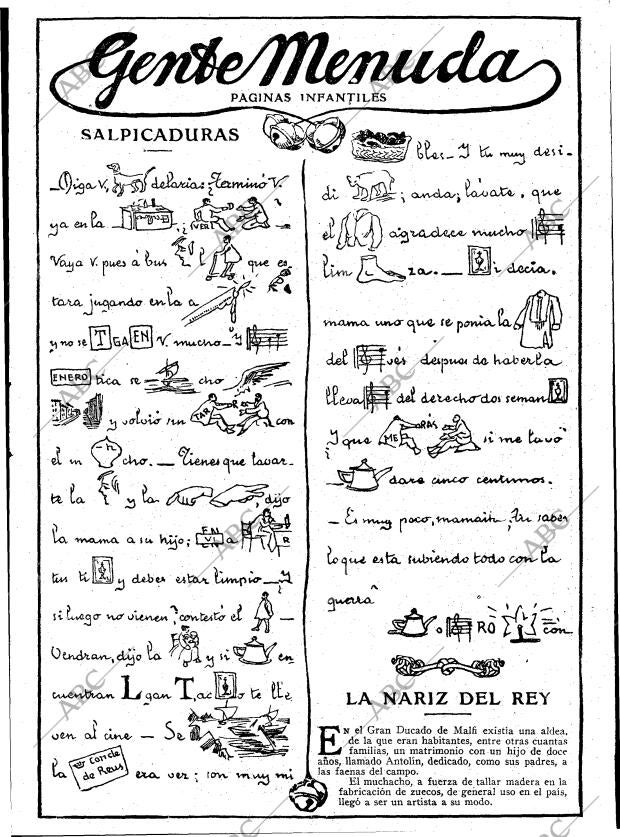 Gente Menuda
PAGINAS INFANTILES
SALPICADURAS
—Diga V, delaria: Terminó V.
ya en la ¿VERI
Vaya V. pues á bus que es
tara jugando en la a
y no se T GA EN V. mucho — Y
ENERO tica se cho
y volvió sin TAR DR con
el m n cho. — Tienes que lavar-
te la y la , dijo
la mama a su hijo; EN VI a R
tus ti y debes estar limpio — Y
si luego no vienen? contestó el —
Vendran, dijo la y si en
cuentran L gan T ac o te lle
ven al cine — Se
la conde de Reus era ver; son muy mi
bles — Y tu muy desi-
di ; anda; lávate, que
el agradece mucho
lim za. — i decia.
mama uno que se ponia la
del vés despues de haberla
lleva del derecho dos seman
Y que ME RÁS si me lavo
— dare cinco centimos.
— Es muy poco, mamain; Tu sabes
lo que esta subiendo todo con la
guerra
o RO con
LA NARIZ DEL REY
EN el Gran Ducado de Malfi existia una aldea,
de la que eran habitantes, entre otras cuantas
familias, un matrimonio con un hijo de doce
años, llamado Antolín, dedicado, como sus padres, a
las faenas del campo.
El muchacho, a fuerza de tallar madera en la
fabricación de zuecos, de general uso en el país,
llegó a ser un artista a su modo.